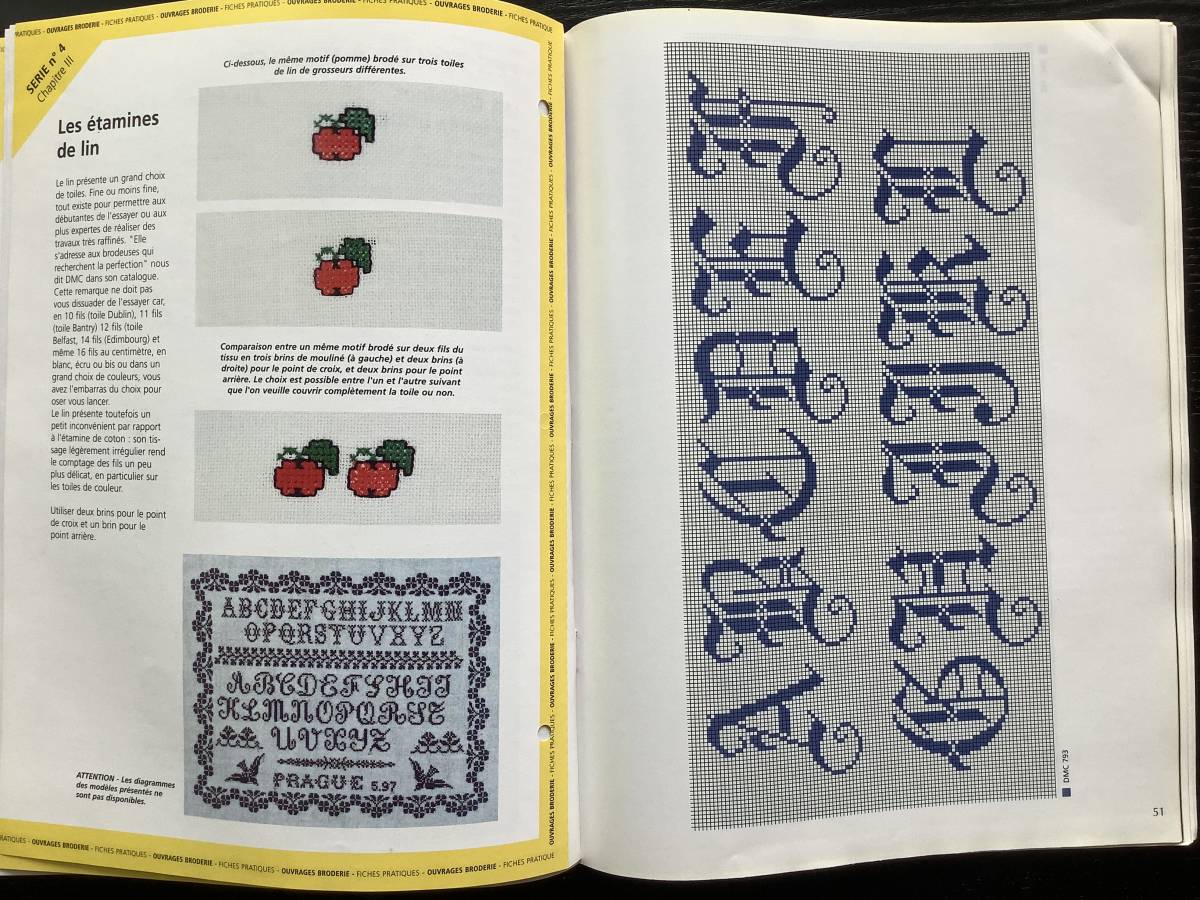 PRATIQUES - OUVRAGES BRODERIE - FICHES PRATIQUES - OUVRAGES BRODERIE - FICHES PRATIQUES - OUVRAGES BRODERIE - FICHES PRATIQUES - OUVRAGES BRODERIE - FICHES PRATIQUE
SERIE n° 4
Chapitre III
Les étamines
de lin
Le lin présente un grand choix
de toiles. Fine ou moins fine,
tout existe pour permettre aux
débutantes de l'essayer ou aux
plus expertes de réaliser des
travaux très raffinés. "Elle
s'adresse aux brodeuses qui
recherchent la perfection" nous
dit DMC dans son catalogue.
Cette remarque ne doit pas
vous dissuader de l'essayer car,
en 10 fils (toile Dublin), 11 fils
(toile Bantry) 12 fils (toile
Belfast, 14 fils (Edimbourg) et
même 16 fils au centimètre, en
blanc, écru ou bis ou dans un
grand choix de couleurs, vous
avez l'embarras du choix pour
oser vous lancer.
Le lin présente toutefois un
petit inconvénient par rapport
à l'étamine de coton : son tis-
sage légèrement irrégulier rend
le comptage des fils un peu
plus délicat, en particulier sur
les toiles de couleur.
Utiliser deux brins pour le point
de croix et un brin pour le
point arrière.
ATTENTION - Les diagrammes
des modèles présentés ne
sont pas disponibles.
Ci-dessous, le même motif (pomme) brodé sur trois toiles
de lin de grosseurs différentes.
Comparaison entre un même motif brodé sur deux fils du
tissu en trois brins de mouliné (à gauche) et deux brins (à
droite) pour le point de croix, et deux brins pour le point
arrière. Le choix est possible entre l'un et l'autre suivant
que l'on veuille couvrir complètement la toile ou non.
ABCDEFGHIJKLMN
OPQRSTUVXYZ
ABCDEFGHIJ
KLMNOPQRSZ
UVXYZ
PRAGUE 5.97
PRATIQUES - OUVRAGES BRODERIE - FICHES PRATIQUES - OUVRAGES BRODERIE - FICHES PRATIQUES - OUVRAGES BRODERIE - FICHES PRATIQUES - OUVRAGES BRODERIE - FICHES PRATIQUE
OUVRAGES BRODERIE - FICHES PRATIQUES - OUVRAGES BRODERIE - FICHES PRATIQUES - OUVRAGES BRODERIE - FICHES PRATIQUES - OUVRAGES BRODERIE - FICHES PRATIQUE
DMC 793
51